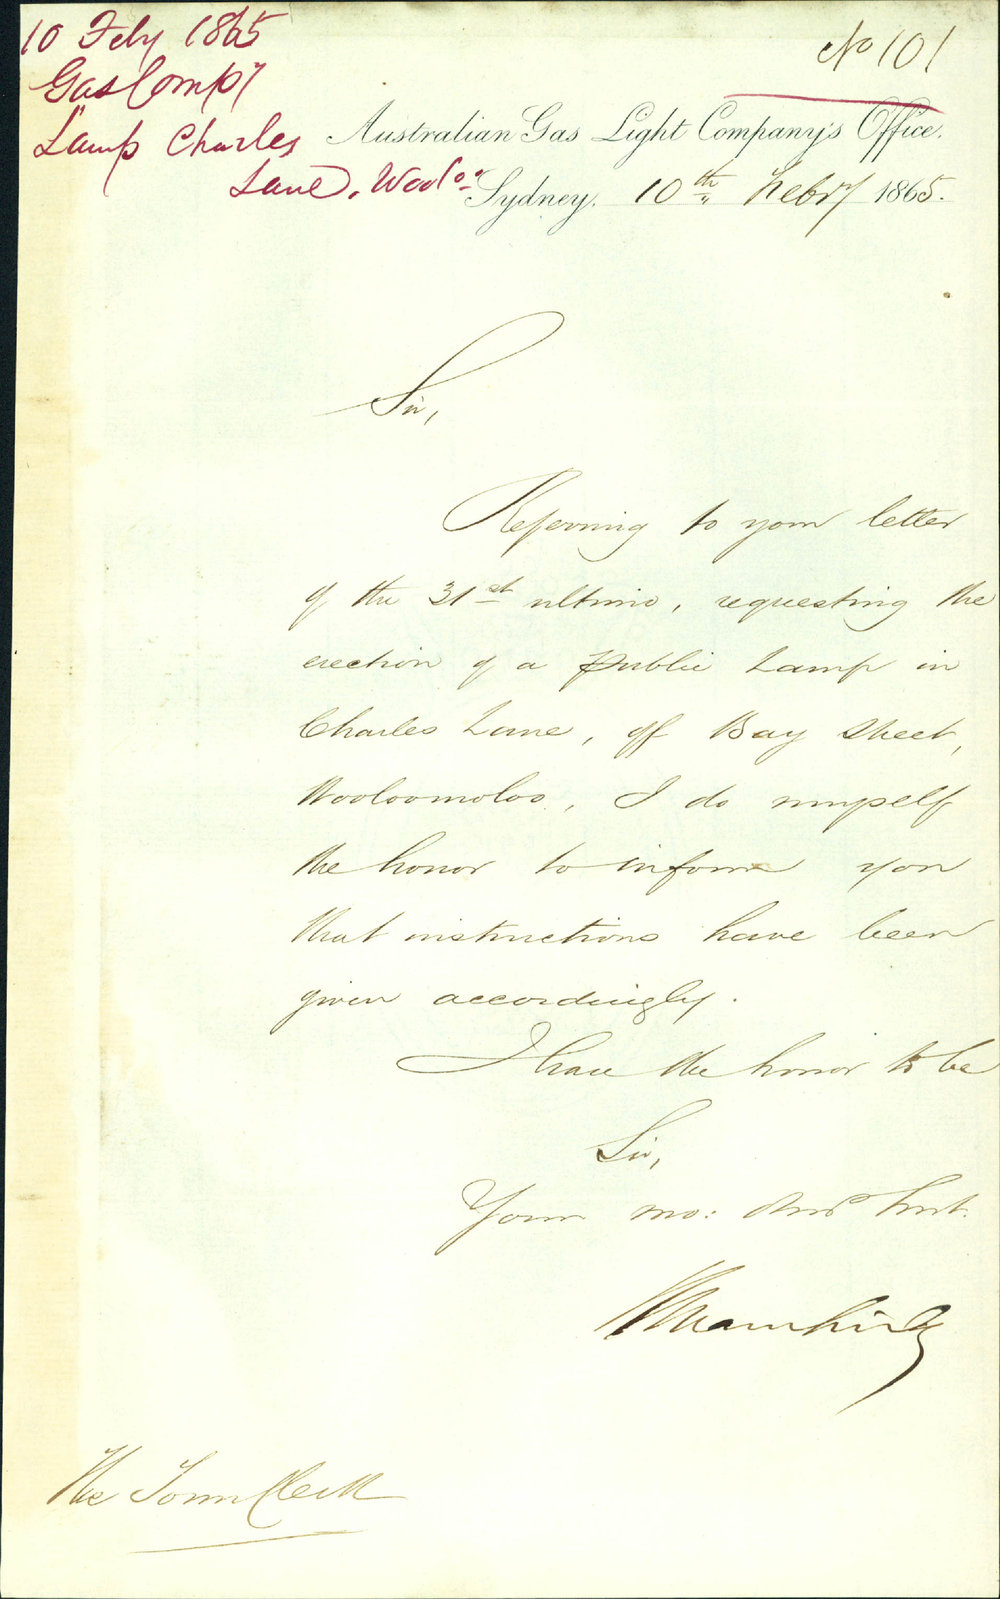 10 Feby 1865
Gas Compy
Lamp Charles
Lane, Wool.oo
No 101
Australian Gas Light Company's Office.
Sydney. 10th Febry 1865.
Sir,
Referring to your letter
of the 31st ultimo, requesting the
erection of a public Lamp in
Charles Lane, off Bay Street,
Wooloomoloo, I do myself
the honor to inform you
that instructions have been
given accordingly.
I have the honor to be
Sir,
Your mo: Obt Servt.
The Town Clerk